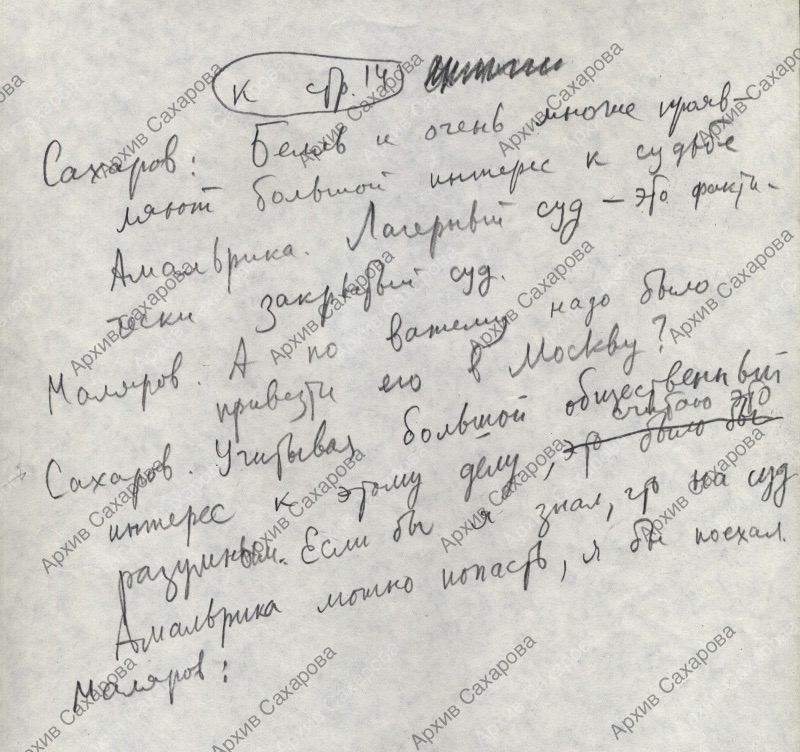 к стр. 14
Сахаров: Белов и очень многие прояв-
ляют большой интерес к судьбе
Амальрика. Лагерный суд – это факти-
чески закрытый суд.
Маляров. А по вашему надо было
привезти его в Москву?
Сахаров. Учитывая большой общественный
считаю это
интерес к этому делу, это было бы
разумным. Если бы я знал, что на суд
Амальрика можно попасть, я бы поехал.
Маляров:
Архив Сахарова